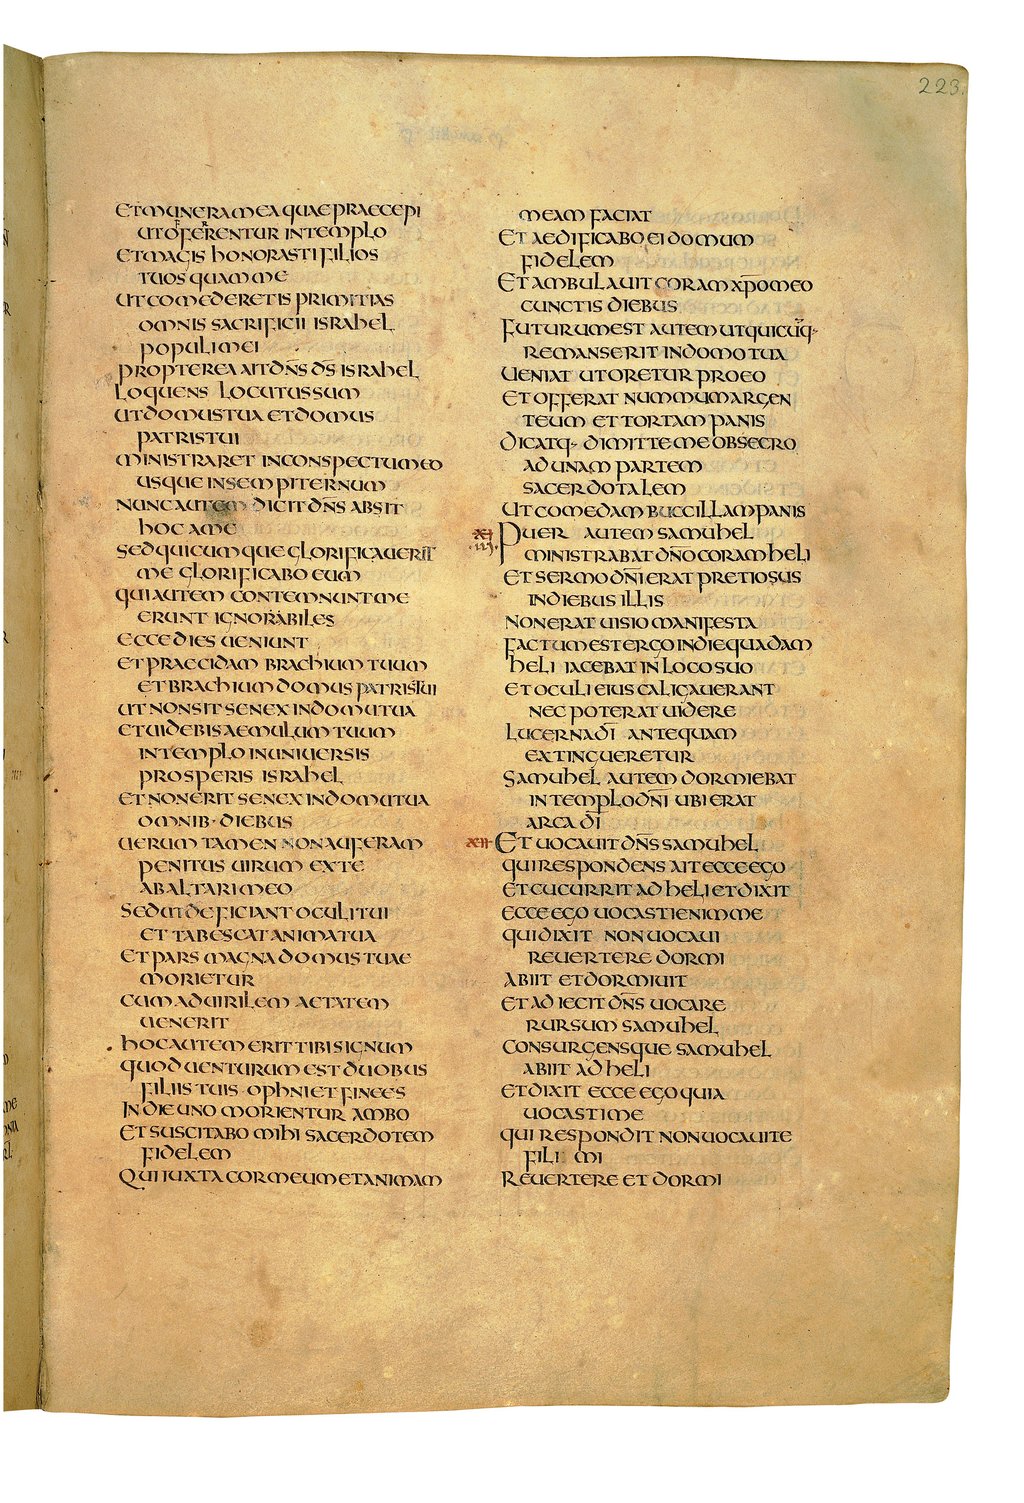 223.
ET MUNERA MEA QUAE PRAECEPI
UT OFFERRENTUR IN TEMPLO
ET MAGIS HONORASTI FILIOS
TUOS QUAM ME
UT COMEDERETIS PRIMITIAS
OMNIS SACRIFICII ISRAHEL
POPULI MEI
PROPTEREA AIT DN̅S D̅S ISRAHEL
LOQUENS LOCUTUS SUM
UT DOMUS TUA ET DOMUS
PATRIS TUI
MINISTRARET IN CONSPECTU MEO
USQUE IN SEMPITERNUM
NUNC AUTEM DICIT DN̅S ABSIT
HOC A ME
SED QUICUMQUE GLORIFICAUERIT
ME GLORIFICABO EUM
QUI AUTEM CONTEMNUNT ME
ERUNT IGNOBILES
ECCE DIES UENIUNT
ET PRAECIDAM BRACHIUM TUUM
ET BRACHIUM DOMUS PATRIS TUI
UT NON SIT SENEX IN DOMU TUA
ET UIDEBIS AEMULUM TUUM
IN TEMPLO IN UNIUERSIS
PROSPERIS ISRAHEL
ET NON ERIT SENEX IN DOMU TUA
OMNIB· DIEBUS
UERUM TAMEN NON AUFERAM
PENITUS UIRUM EX TE
AB ALTARI MEO
SED UT DEFICIANT OCULI TUI
ET TABESCAT ANIMA TUA
ET PARS MAGNA DOMUS TUAE
MORIETUR
CUM AD UIRILEM AETATEM
UENERIT
HOC AUTEM ERIT TIBI SIGNUM
QUOD UENTURUM EST DUOBUS
FILIIS TUIS · OPHNI ET FINEES
IN DIE UNO MORIENTUR AMBO
ET SUSCITABO MIHI SACERDOTEM
FIDELEM
QUI IUXTA COR MEUM ET ANIMAM
MEAM FACIAT
ET AEDIFICABO EI DOMUM
FIDELEM
ET AMBULAUIT CORAM XP̅O MEO
CUNCTIS DIEBUS
FUTURUM EST AUTEM UT QUICUMQ·
REMANSERIT IN DOMO TUA
UENIAT UT ORETUR PRO EO
ET OFFERAT NUMMUM ARGEN
TEUM ET TORTAM PANIS
DICATQ· DIMITTE ME OBSECRO
AD UNAM PARTEM
SACERDOTALEM
UT COMEDAM BUCCILLAM PANIS
XI PUER AUTEM SAMUHEL
·III· MINISTRABAT DN̅O CORAM HELI
ET SERMO DN̅I ERAT PRETIOSUS
IN DIEBUS ILLIS
NON ERAT UISIO MANIFESTA
FACTUM EST ERGO IN DIE QUADAM
HELI IACEBAT IN LOCO SUO
ET OCULI EIUS CALIGAUERANT
NEC POTERAT UIDERE
LUCERNA D̅I ANTEQUAM
EXTINGUERETUR
SAMUHEL AUTEM DORMIEBAT
IN TEMPLO DN̅I UBI ERAT
ARCA D̅I
XII· ET UOCAUIT DN̅S SAMUHEL
QUI RESPONDENS AIT ECCE EGO
ET CUCURRIT AD HELI ET DIXIT
ECCE EGO UOCASTI ENIM ME
QUI DIXIT NON UOCAUI
REUERTERE DORMI
ABIIT ET DORMIUIT
ET ADIECIT DN̅S UOCARE
RURSUM SAMUHEL
CONSURGENSQUE SAMUHEL
ABIIT AD HELI
ET DIXIT ECCE EGO QUIA
UOCASTI ME
QUI RESPONDIT NON UOCAUI TE
FILI MI
REUERTERE ET DORMI